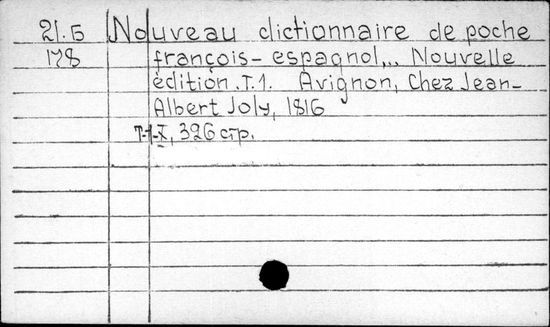 21.Б Nouveau dictionnaire de poche
178 françois-espagnol,.. Nouvelle
édition.T.1. Avignon, Chez Jean-
Albert Joly, 1816
T-1-X, 326 стр.